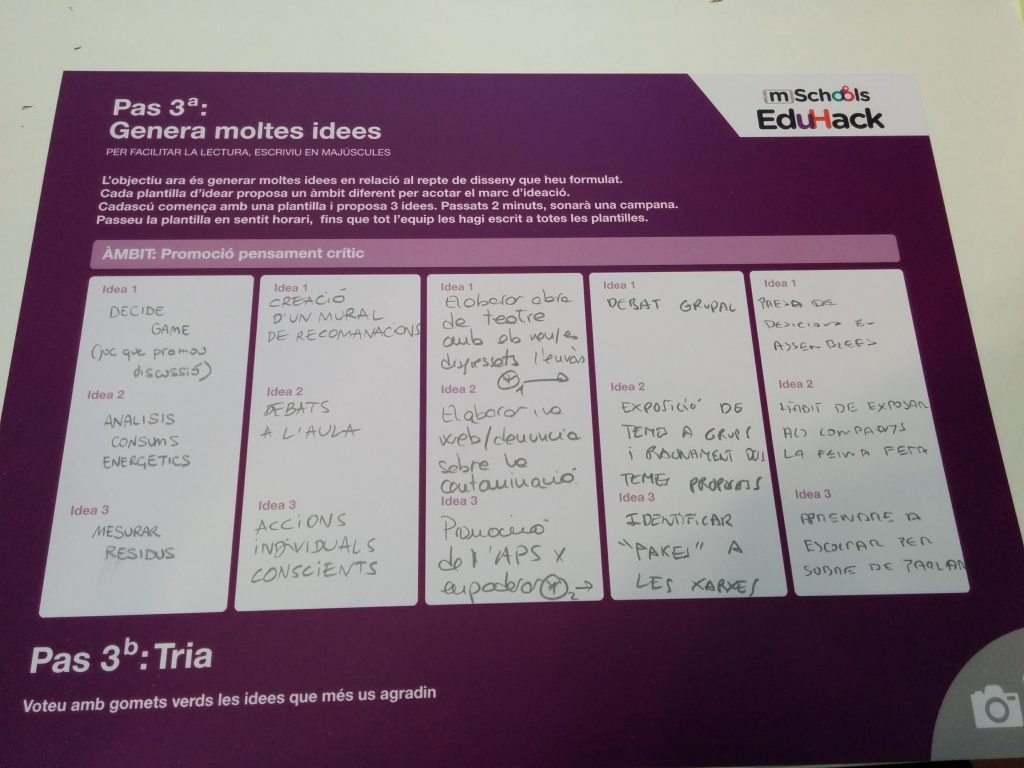 Pas 3a:
Genera moltes idees
PER FACILITAR LA LECTURA, ESCRIVIU EN MAJÚSCULES
mSchools
EduHack
L'objectiu ara és generar moltes idees en relació al repte de disseny que heu formulat.
Cada plantilla d'idear proposa un àmbit diferent per acotar el marc d'ideació.
Cadascú comença amb una plantilla i proposa 3 idees. Passats 2 minuts, sonarà una campana.
Passeu la plantilla en sentit horari, fins que tot l'equip les hagi escrit a totes les plantilles.
ÀMBIT: Promoció pensament crític
Idea 1
DECIDE
GAME
(joc que promou
discussió)
Idea 2
ANALISIS
CONSUMS
ENERGETICS
Idea 3
MESURAR
RESIDUS
Idea 1
CREACIÓ
D'UN MURAL
DE RECOMANACIONS
Idea 2
DEBATS
A L'AULA
Idea 3
ACCIONS
INDIVIDUALS
CONSCIENTS
Idea 1
Elaborar obra
de teatre
amb els nens/es
l'envàs
1
Idea 2
Elaborar
web/denuncia
sobre la
contaminació
Idea 3
Promoció
de l'APS x
empoderar
2
Idea 1
DEBAT GRUPAL
Idea 2
EXPOSICIÓ DE
TEMES A GRUPS
I RAONAMENT DELS
TEMES PROPOSATS
Idea 3
IDENTIFICAR
"FAKES" A
LES XARXES
Idea 1
PRESA DE
DESICIONS EN
ASSEMBLEES
Idea 2
HÀBIT DE EXPOSAR
ALS COMPANYS
LA FEINA FETA
Idea 3
APRENDRE A
ESCOLTAR PER
SOBRE DE PARLAR
Pas 3b: Tria
Voteu amb gomets verds les idees que més us agradin